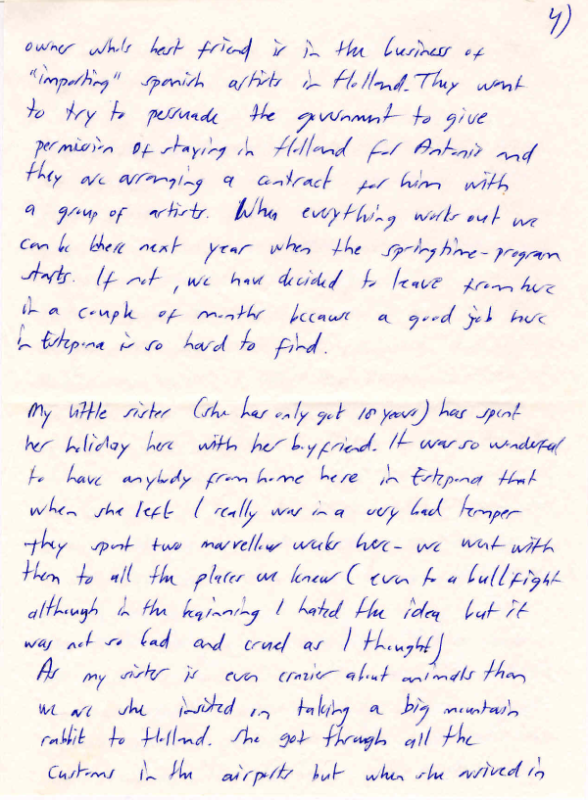 4)
owner who's best friend is in the business of
"importing" spanish artists in Holland. They want
to try to persuade the government to give
permission of staying in Holland for Antonio and
they are arranging a contract for him with
a group of artists. When everything works out we
can be there next year when the springtime-program
starts. If not, we have decided to leave from here
in a couple of months because a good job here
in Estepona is so hard to find.
My little sister (she has only got 18 years) has spent
her holiday here with her boyfriend. It was so wonderful
to have anybody from home here in Estepona that
when she left I really was in a very bad temper
They spent two marvellous weeks here - we went with
them to all the places we knew (even to a bullfight
although in the beginning I hated the idea but it
was not so bad and cruel as I thought)
As my sister is even crazier about animals than
we are she insisted on taking a big mountain
rabbit to Holland. She got through all the
customs in the airports but when she arrived in